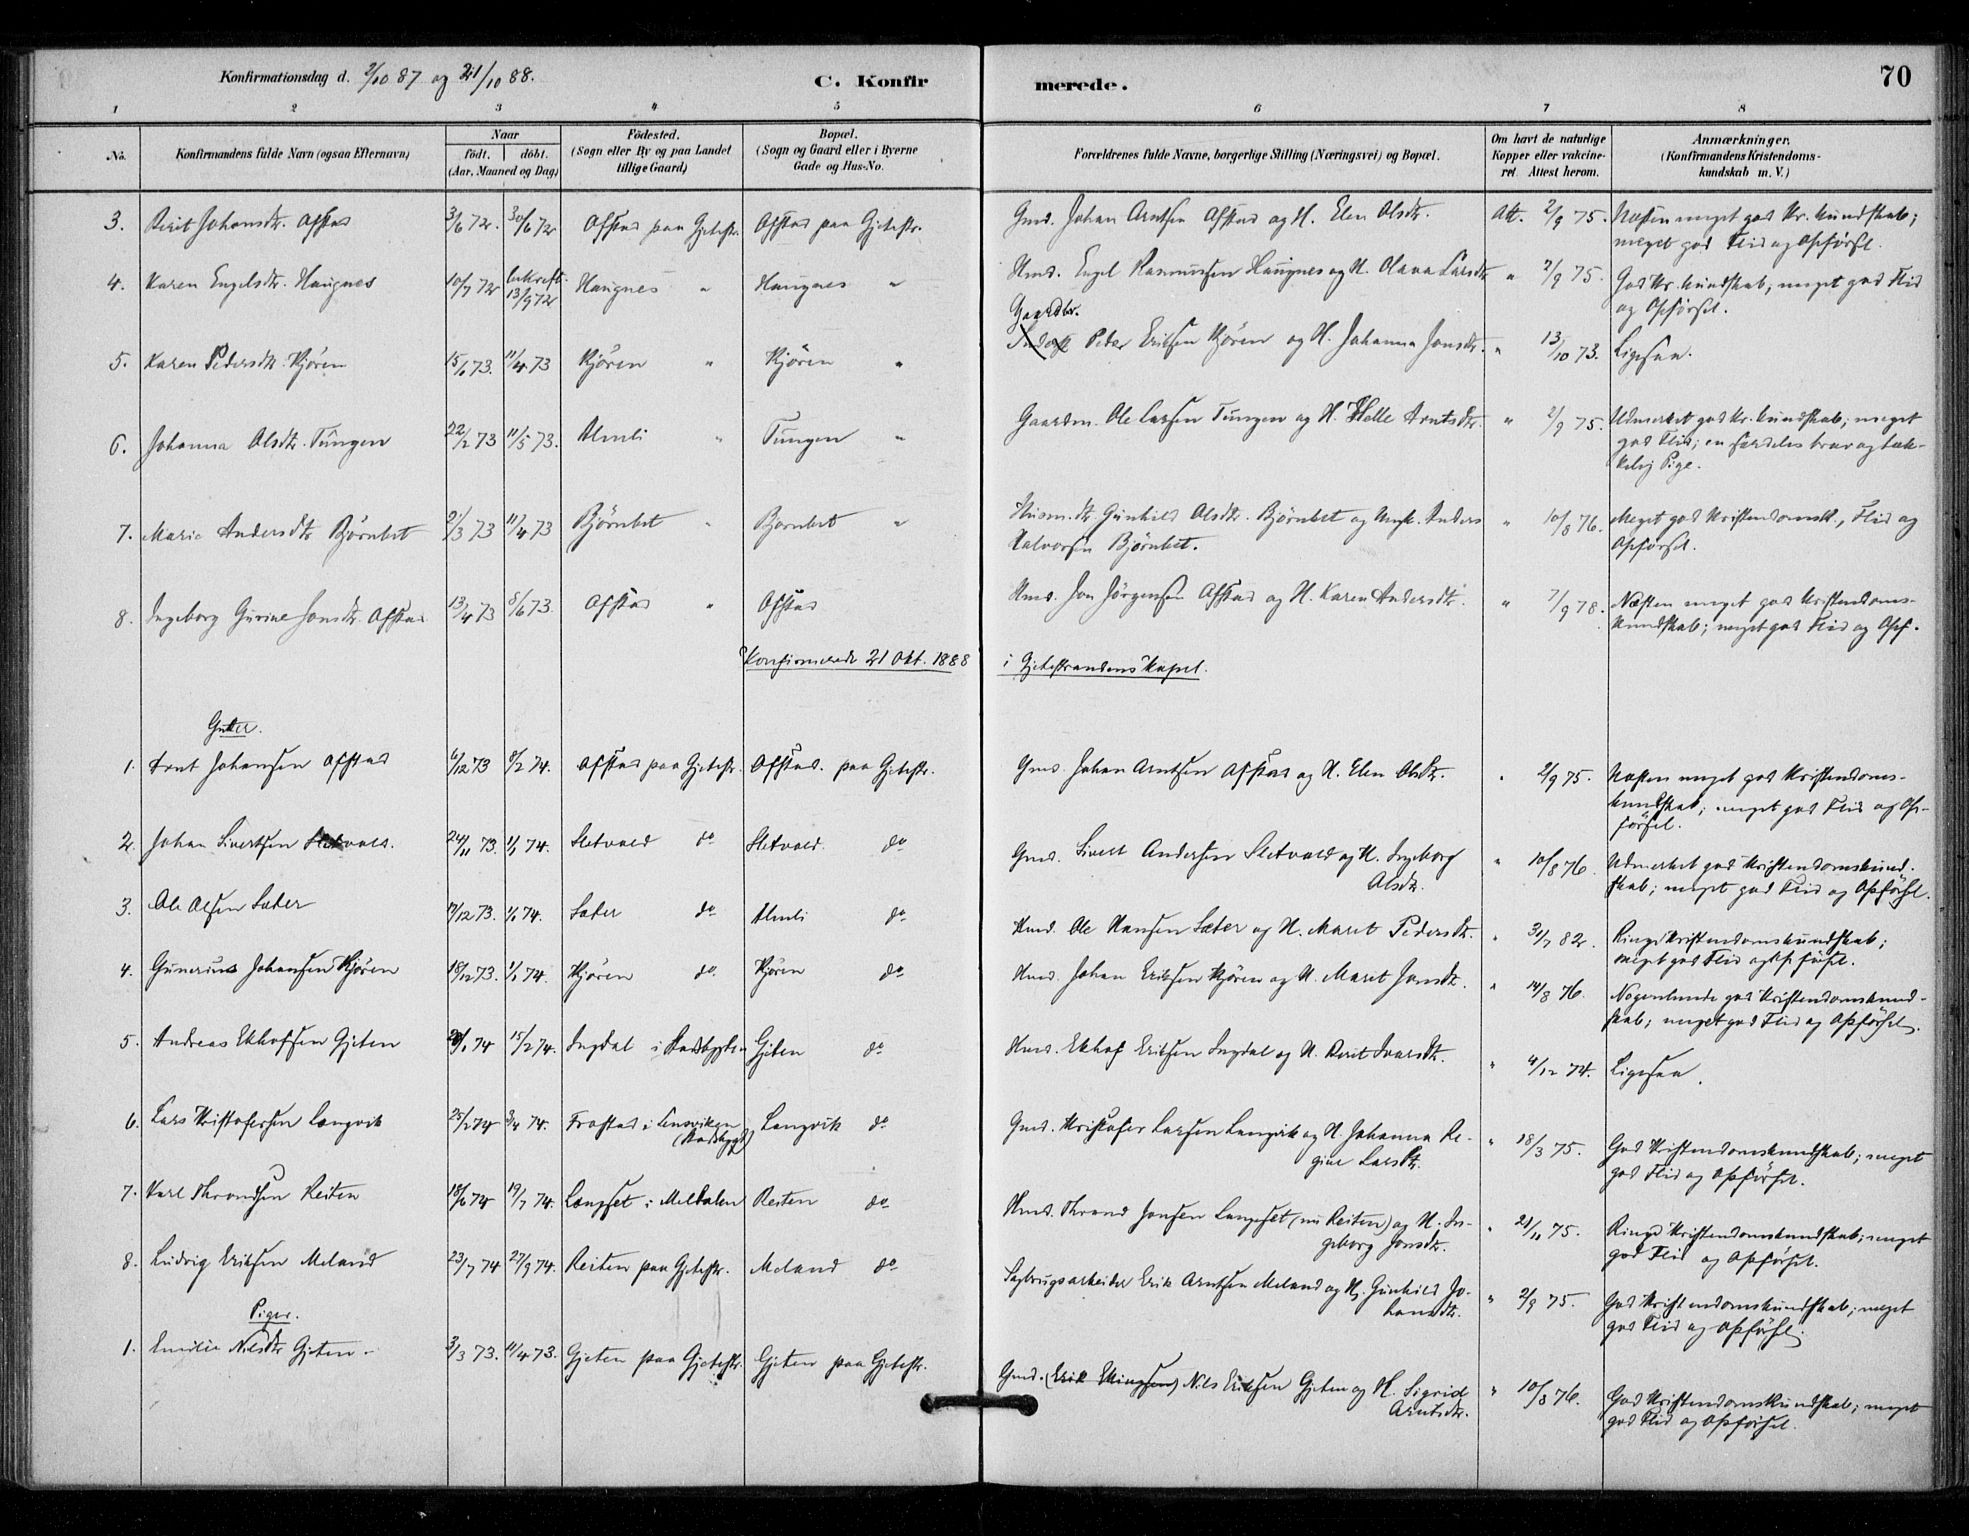 Konfirmationsdag d. 2/10 87 og 21/10 88. C. Konfirmerede. 70
1 2 3 4 5 6 7 8
No. Konfirmandens fulde Navn (ogsaa Efternavn) Naar födt. döbt. (Aar, Maaned og Dag) Födested. (Sogn eller By og paa Landet tillige Gaard) Bopæl. (Sogn og Gaard eller i Byerne Gade og Hus-No. Forældrenes fulde Navne, borgerlige Stilling (Næringsvei) og Bopæl. Om havt de naturlige Kopper eller vakcineret. Attest herom. Anmærkninger. (Konfirmandens Kristendomskundskab m. V.)
3. Berit Johansdtr. Afstad 3/6 72. 30/6 72 Afstad paa Gjetestr. Afstad paa Gjetestr. Gmd. Johan Arntsen Afstad og H. Elen Olsdtr. Att. 2/9 75. Næsten meget god Kr. kundskab;
meget god Flid og Opførsel.
4. Karen Engelsdtr. Haugnes 10/7 72 bekræft. 13/9 72 Haugnes " Haugnes " Hmd. Engel Rasmussen Haugnes og H. Olava Larsdtr " 2/9 75. God Kr. kundskab; meget god Flid
og Opførsel.
Gaardbr.
5. Karen Pedersdtr. Kjören 15/1 73. 11/4 73 Kjören " Kjören " Peter Eriksen Kjören og H. Johanna Jonsdtr. " 13/10 73. Ligesaa.
6. Johanna Olsdtr. Tungen 22/2 73 11/5 73. Almli " Tungen " Gaardm. Ole Larsen Tungen og H. Arntsdtr. " 2/9 75. Udmerket god Kr. kundskab; meget
god Flid; en særdeles brav og tækkelig Pige.
7. Marie Andersdtr Björnbet 21/3 73 11/4 73 Björnbet " Bjornbet " Husm. dtr Gunhild Olsdtr. Björnbet og Ungk. Anders " 10/8 76. Meget god Kristendomsk., Flid og
Halvorsen Björnbet. Opførsel.
8. Ingeborg Gurine Jonsdtr. Afstad 13/4 73 8/6 73. Afstad " Afstad Hmd. Jon Jörgensen Afstad og H. Karen Andersdtr. " 7/9 78. Næsten meget god Kristendoms-
kundskab; meget god Flid og Opf.
Konfirmerede 21 Okt. 1888 i Gjetestrandens Kapel.
Gutter.
1. Arnt Johansen Afstad 6/12 73 8/2 74. Afstad paa Gjetestr. Afstad. paa Gjetestr. Gmd. Johan Arntsen Afstad og H. Elen Olsdtr. " 2/9 75. Næsten meget god Kristendoms-
kundskab; meget god Flid og Op-
førsel.
2. Johan Sivertsen Sletvold. 24/11 73. 1/1 74. Sletvold do Sletvold. do Gmd. Sivert Andersen Sletvold og H. Ingeborg " 10/8 76. Udmerket god Kristendomskund-
Olsdtr. skab; meget god Flid og Opførsel.
3. Ole Olsen Sæter 17/12 73. 1/6 74. Sæter do Almli do Hmd. Ole Hansen Sæter og H. Marit Pedersdtr. " 31/7 82. Ringe Kristendomskundskab;
meget god Flid og Opførsel.
4. Gunerius Johansen Kjören 18/12 73. 1/1 74. Kjören do. Kjören do Hmd. Johan Eriksen Kjören og H. Marit Jonsdtr. " 14/8 76. Nogenlunde god Kristendomskund-
skab; meget god Flid og Opførsel.
5. Andreas Ekhofsen Gjeten /1 74 15/2 74. Ingdal i Stadsbygden Gjeten do Hmd. Ekhof Eriksen Ingdal og H. Berit Ivarsdtr. " 4/12 74. Ligesaa.
6. Lars Kristofersen Langvik 25/2 74 3/4 74. Frostad i Lensviken (Stadsbygd) Langvik do Gmd. Kristofer Larsen Langvik og H. Johanna Re- " 18/3 75. God Kristendomskundskab; meget
gine Larsdtr. god Flid og Opførsel.
7. Karl Throndsen Reiten 18/6 74 19/7 74. Langset i Meldalen Reiten do Hmd. Thrond Jonsen Langeset (nu Reiten) og H. In- " 21/11 75. Ringe Kristendomskundskab; meget
geborg Jonsdtr. god Flid og Opførsel.
8. Ludvig Eriksen Meland 23/7 74 27/9 74. Reiten paa Gjetestr. Meland do Sagbrugsarbeider Erik Arntsen Meland og H. Gunhild Jo- " 2/9 75. God Kristendomskundskab; meget
hansdtr. god Flid og Opførsel.
Piger.
1. Emilie Nilsdtr Gjeten. 3/3 73. 11/4 73. Gjeten paa Gjetestr. Gjeten paa Gjetestr. Gmd. (Erik Ellingsen) Nils Eriksen Gjeten og H. Sigrid " 10/8 76. God Kristendomskundskab; meget
Arntsdtr. god Flid og Opførsel.